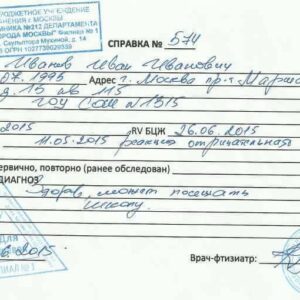 БЮДЖЕТНОЕ УЧРЕЖДЕНИЕ
ЗДРАВООХРАНЕНИЯ Г. МОСКВЫ
ПОЛИКЛИНИКА №212 ДЕПАРТАМЕНТА
ГОРОДА МОСКВЫ" Филиал № 1
Скульптора Мухиной, д. 14
1027739029339
СПРАВКА № 574
Иванов Иван Иванович
07.1995 Адрес г. Москва пр-т Марша
д. 15 кв 115
ГОУ СОШ № 1315
2015 RV БЦЖ 26.06.2015
11.05.2015 реакция отрицательная
первично, повторно (ранее обследован)
ДИАГНОЗ
Здоров, может посещать
школу.
ДЛЯ
2015
Врач-фтизиатр: